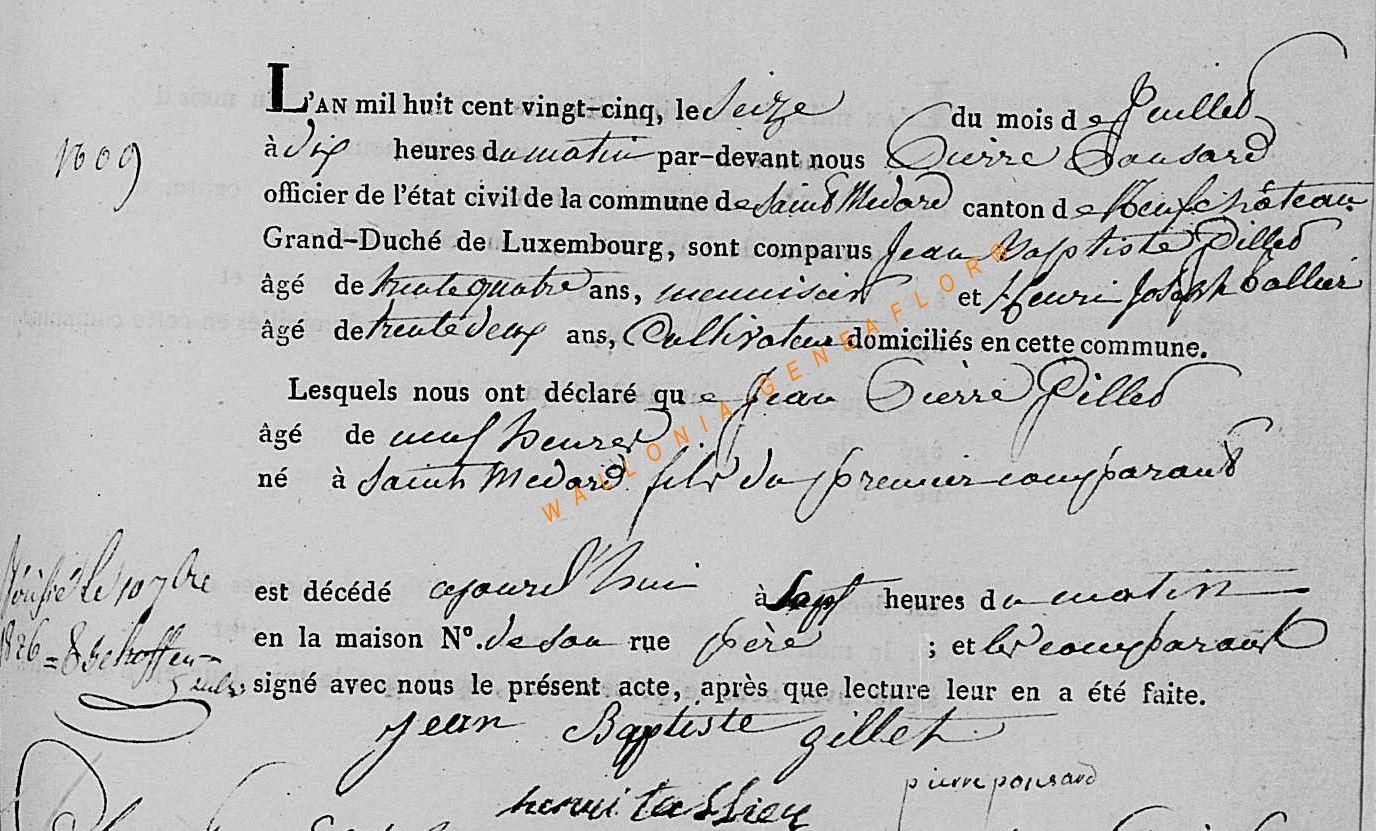 L'AN mil huit cent vingt-cinq, le Seize du mois de Juillet
1609
à dix heures du matin par-devant nous Pierre Ponsard
officier de l'état civil de la commune de Saint Medard canton de Neufchâteau
Grand-Duché de Luxembourg, sont comparus Jean Baptiste Gillet
âgé de trente quatre ans, menuisier et Henri Joseph
âgé de trente deux ans, Cultivateur domiciliés en cette commune.
Lesquels nous ont déclaré que Jean Pierre Gillet
âgé de neuf heures
né à Saint Medard fils du premier comparant
WALLONIA-GENEAFLOR®
est décédé ajourd'hui à Sept heures du matin
en la maison N°. de son rue père ; et les comparant
signé avec nous le présent acte, après que lecture leur en a été faite.
le 10 7bre
1826
jean Baptiste gillet
pierre ponsard
henri